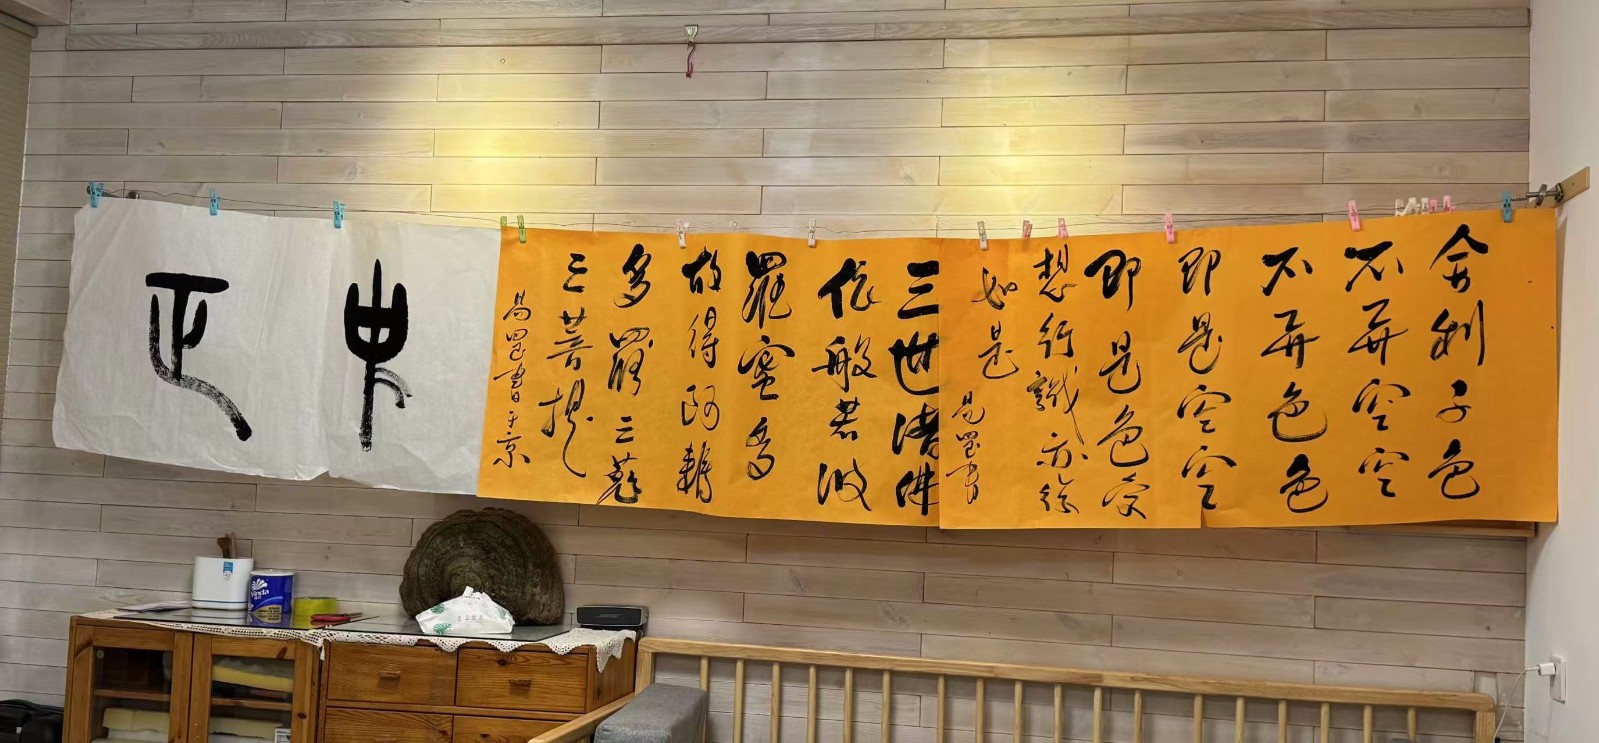 舍利子色
不异空空
不异色色
即是空空
即是色受
想行識亦復
如是
書
三世諸佛
依般若波
羅蜜多
故得阿耨
多羅三藐
三菩提
書于京
Vinda